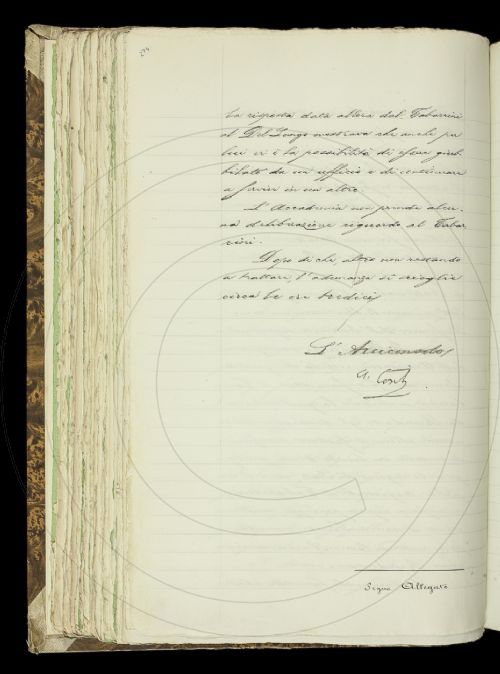 la risposta data allora dal Tabarrini
al Del Lungo mostrava che anche per
lui vi è la possibilità di essere giub-
bilato da un ufficio e di continuare
a servire in un altro.
L'Accademia non prende alcu-
na deliberazione riguardo al Tabar
rini.
Dopo di che, altro non restando
a trattare, l'adunanza si scioglie
circa le ore tredici
L'Arciconsolo
A. Conti
Segue Allegato